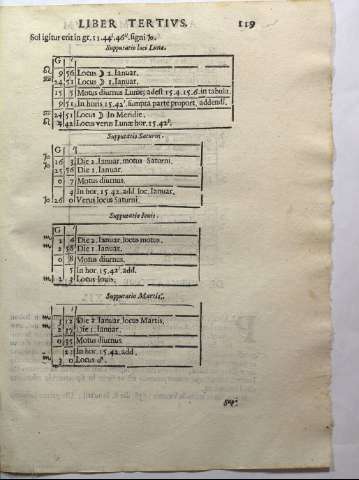 LIBER TERTIVS. 119
Sol igitur erit in gr. 11. 44'. 46''. signi ♑.
Supputatio loci Lunæ.
G '
♌ 9 56 Locus ☽ 2. Ianuar.
24 51 Locus ☽ 1. Ianuar.
15 5 Motus diurnus Lunæ, adest 15.4.15.6. in tabulis.
9 51 In horis 15.42'. sumpta parte proport. addendi.
24 51 Locus ☽ In Meridie.
♌ 42 Locus verus Lunæ hor. 15.42'.
Supputatio Saturni.
G '
♑ 26 3 Die 2. Ianuar. motus Saturni.
25 56 Die 1. Ianuar.
0 7 Motus diurnus.
4 In hor. 15.42. add. loc. Ianuar.
♑ 26 0 Verus locus Saturni.
Supputatio Iouis.
G '
♏ 2 6 Die 2. Ianuar. locus motus.
♏ 58 Die 1. Ianuar.
0 8 Motus diurnus.
5 In hor. 15.42'. add.
♏ 2 3 Locus Iouis.
Supputatio Martis.
♏ 3 12 Die 2. Ianuar. locus Martis.
2 37 Die 1. Ianuar.
0 35 Motus diurnus
23 In hor. 15.42. add.
♏ 3 0 Locus ♂.
Sup-